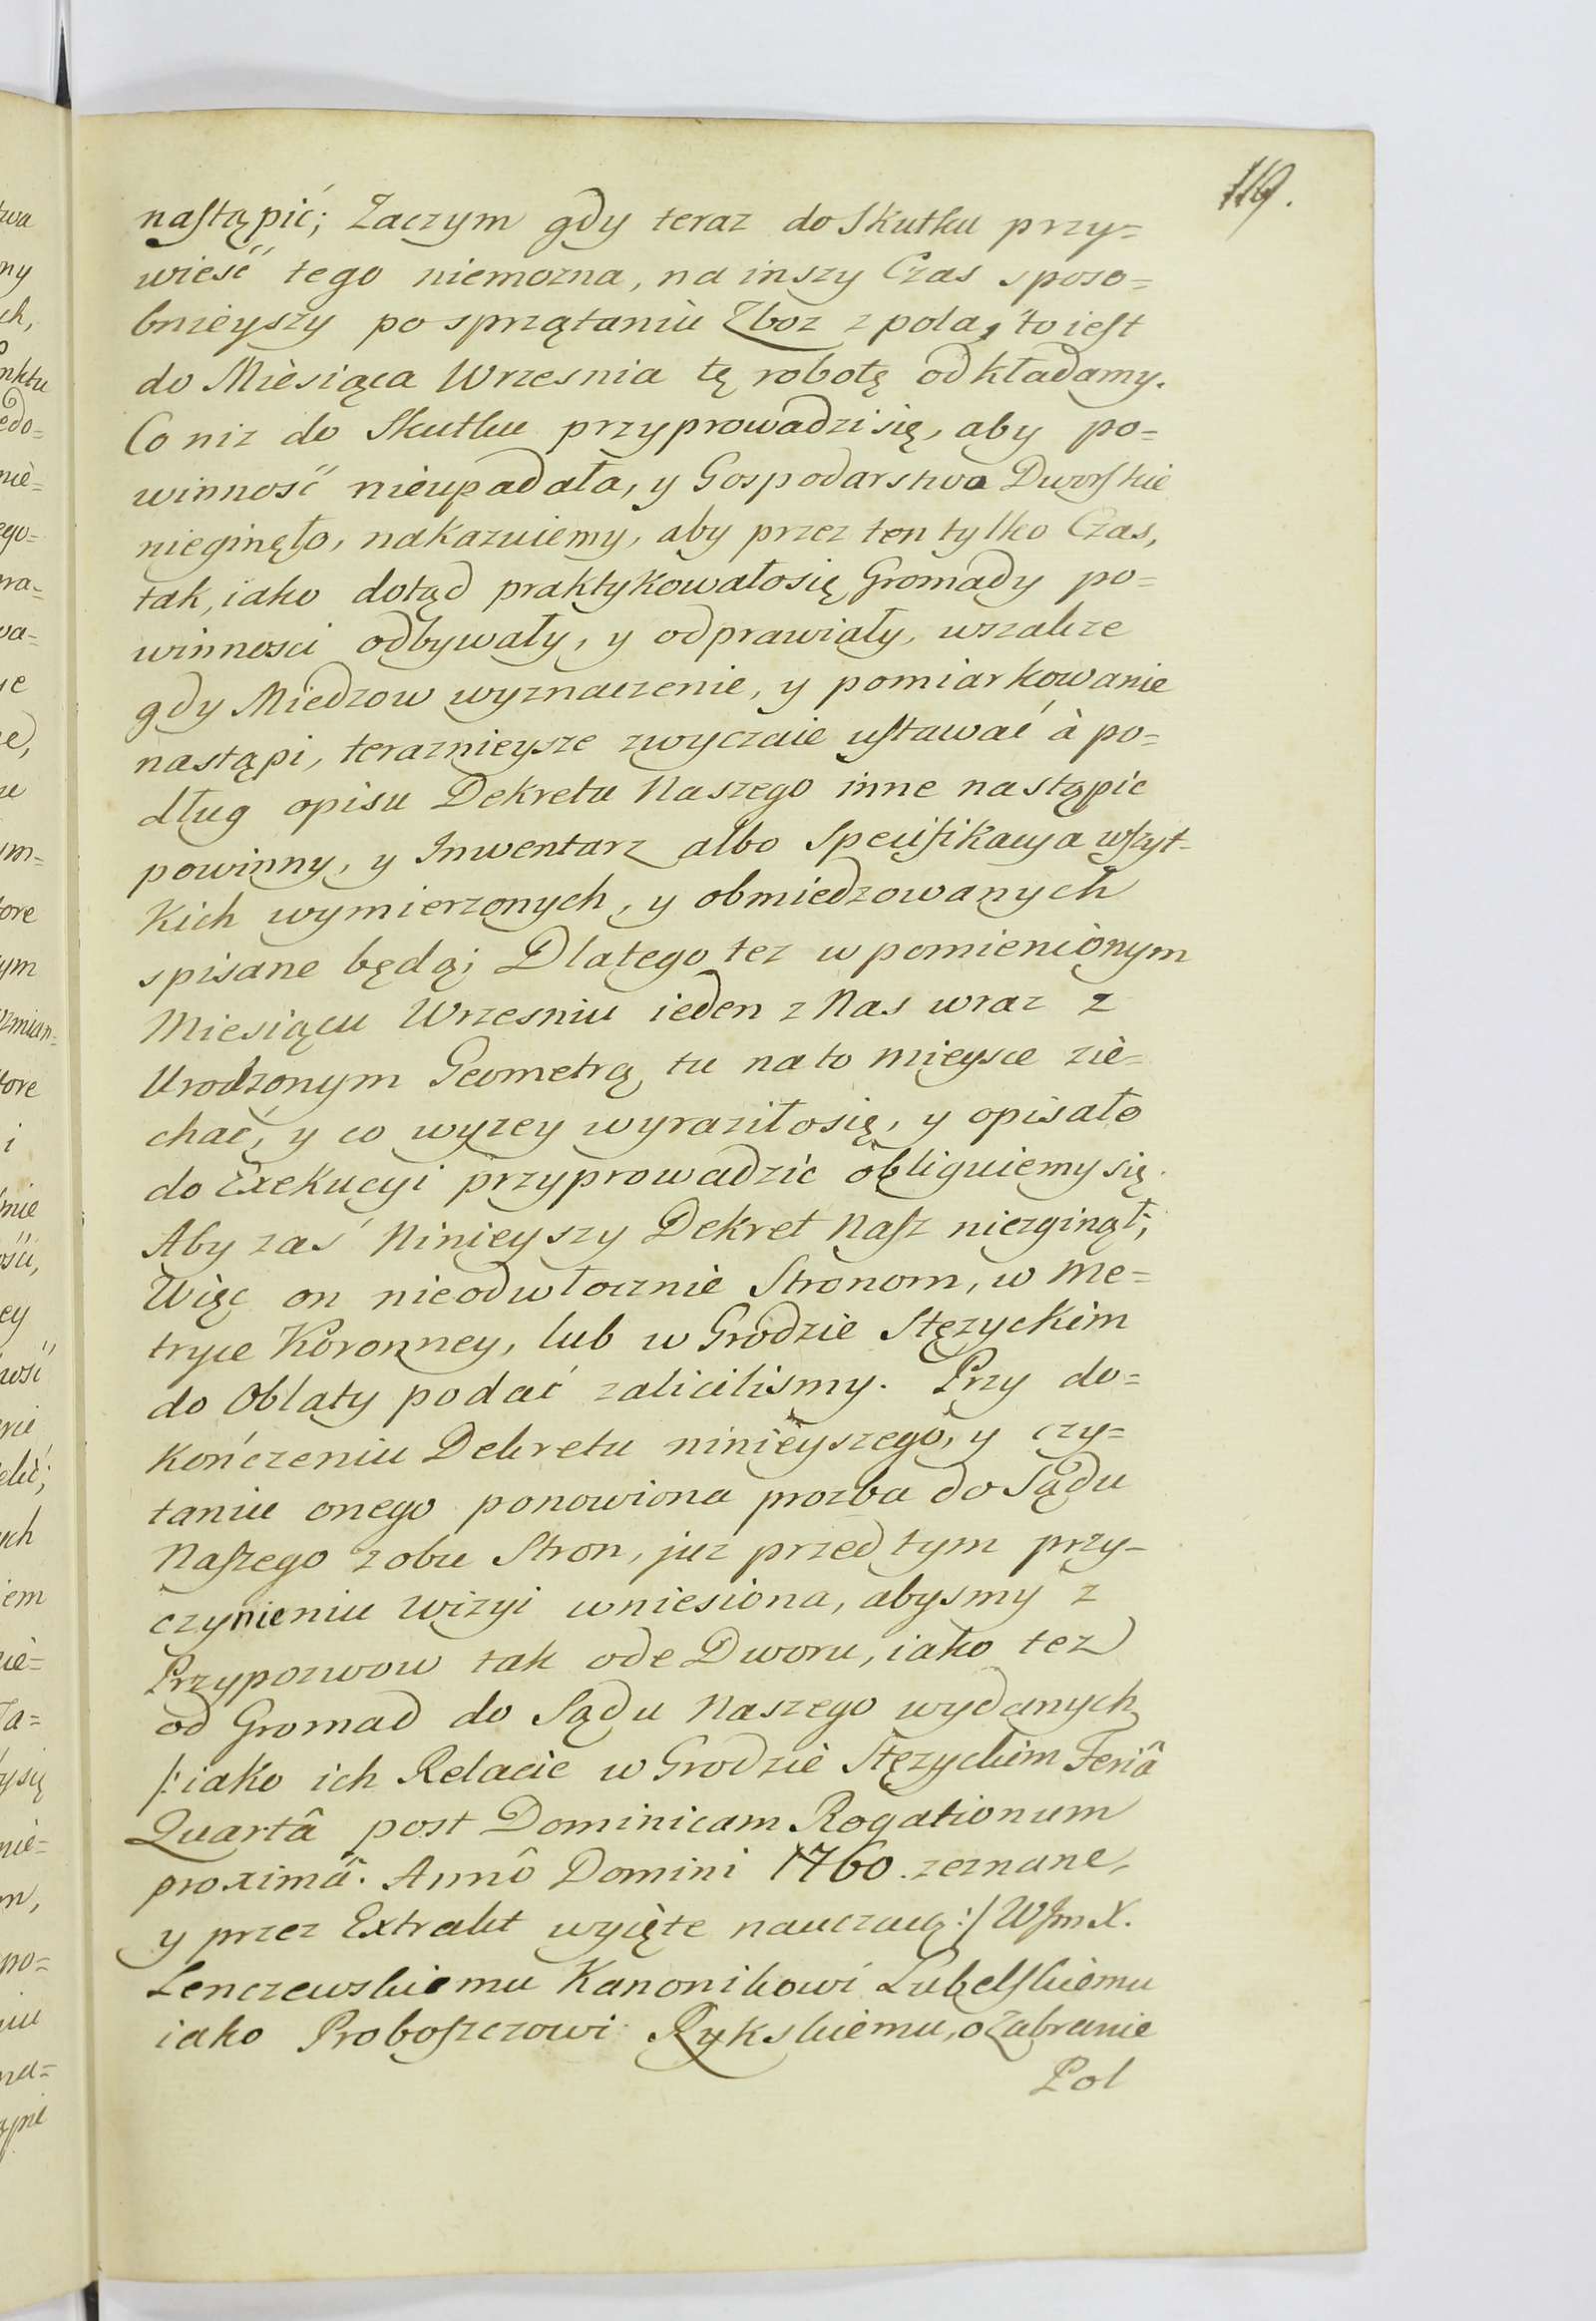 119.
naſtąpić; Zaczym gdy teraz do Skutku przy=
wieść tego niemozna, na inszy Czas sposo=
bnieyszy po sprzątaniu Zboz z pola, to ieſt
do Miesiąca Wrzesnia tę robotę odkładamy.
Co niz do Skutku przyprowadzi się, aby po=
winność nieupadała, y Gospodarstwo Dworſkie
nieginęło, nakazuiemy, aby przez ten tylko Czas,
tak, iako dotąd praktykowało się Gromady po=
winnosci odbywały, y odprawiały, wszakze
gdy Miedzow wyznaczenie, y pomiarkowanie
nastąpi, teraznieysze zwyczaie uſtawać à po=
dług opisu Dekretu Naszego inne nastąpić
powinny, y Inwentarz albo Specifikacya wſzyt-
kich wymierzonych, y obmiedzowanych
spisane będą; Dlatego tez w pomienionym
Miesiącu Wrzesniu ieden z Nas wraz z
Urodzonym Geometrą tu na to mieysce zie=
chać, y co wyzey wyraziło się, y opisało
do Exekucyi przyprowadzić obliguiemy się.
Aby zaś Ninieyszy Dekret Naſz niezginął,
Więc on nieodwłocznie Stronom, w Me=
tryce Koronney, lub w Grodzie Stęzyckim
do Oblaty podać zaliciliśmy. Przy do=
kończeniu Dekretu ninieyszego, y czy=
taniu onego ponowiona prozba do Sądu
Naſzego z obu Stron, juz przed tym przy-
czynieniu Wizyi wniesiona, abysmy z
Przypozwow tak ode Dworu, iako tez
od Gromad do Sądu Naszego wydanych
/: iako ich Relacie w Grodzie Stęzyckim Feriâ
Quartâ post Dominicam Rogationum
proximâ. Annô Domini 1760. zeznane,
y przez Extrakt wyięte nauczaią :/ WJm X.
Lenczewskiemu Kanonikowi Lubelſkiemu
iako Proboſzczowi Rykskiemu, o Zabranie
Pol